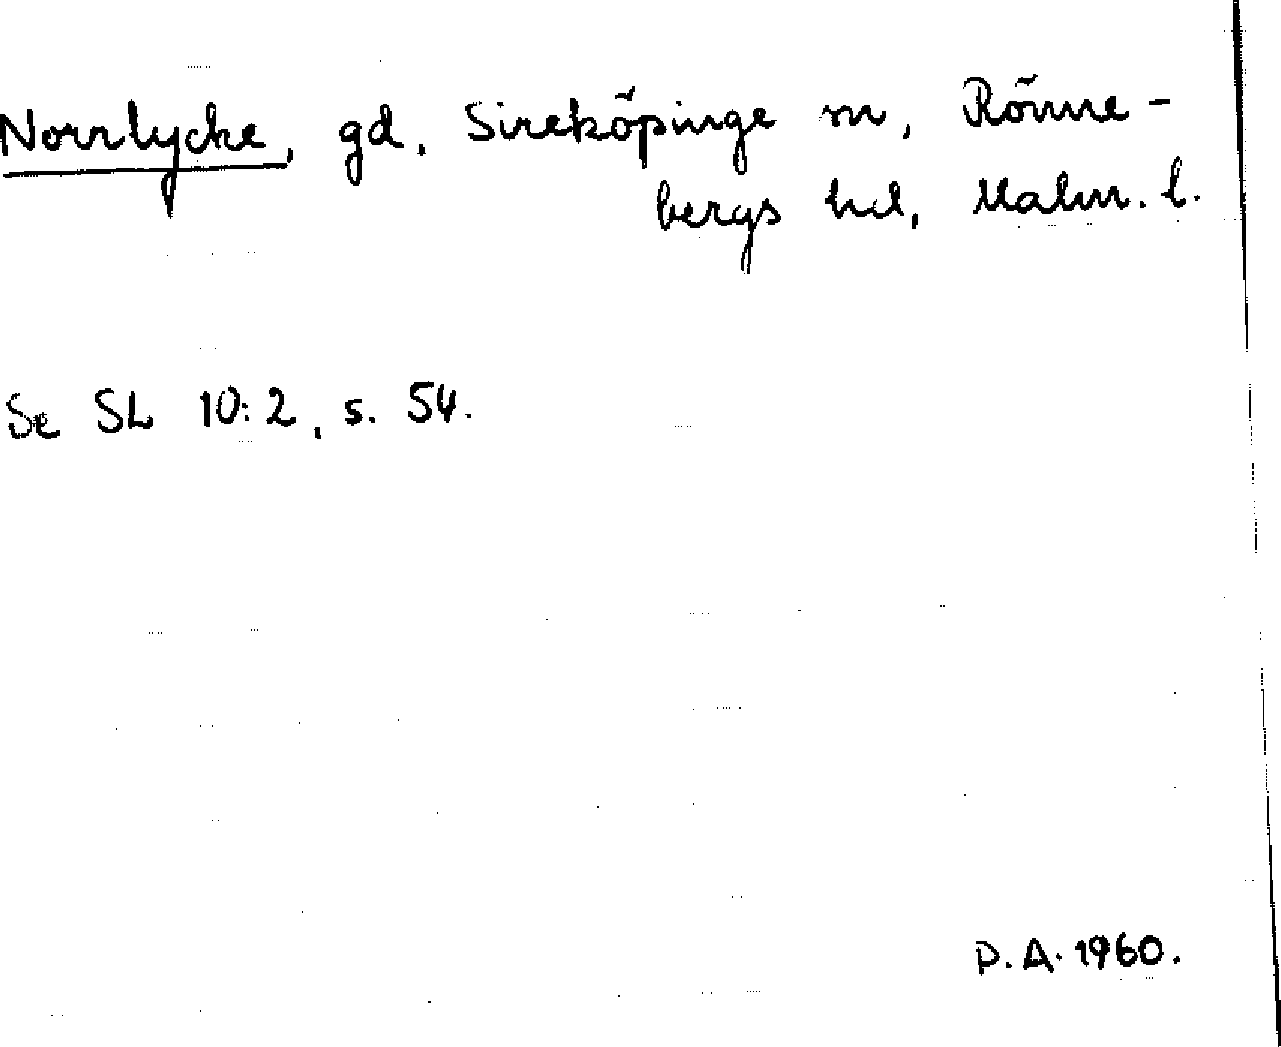 Norrlycke, gd. Sireköpinge sn, Rönne-
bergs hd, Malm. l.
Se SL 10:2, s. 54.
P.A. 1960.